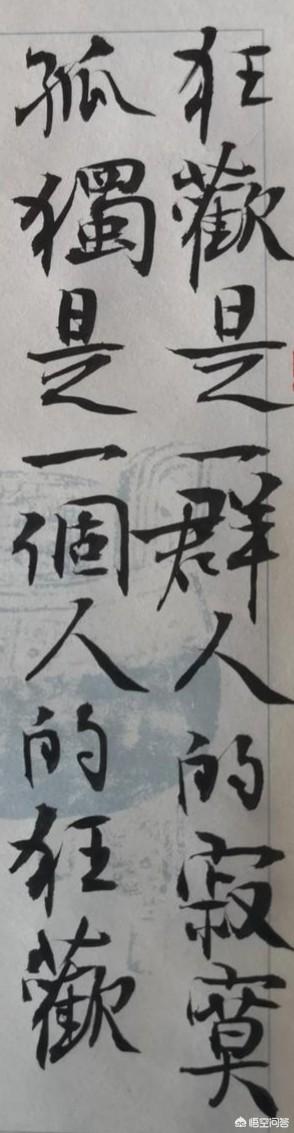 狂歡是一群人的寂寞
孤獨是一個人的狂歡
悟空问答